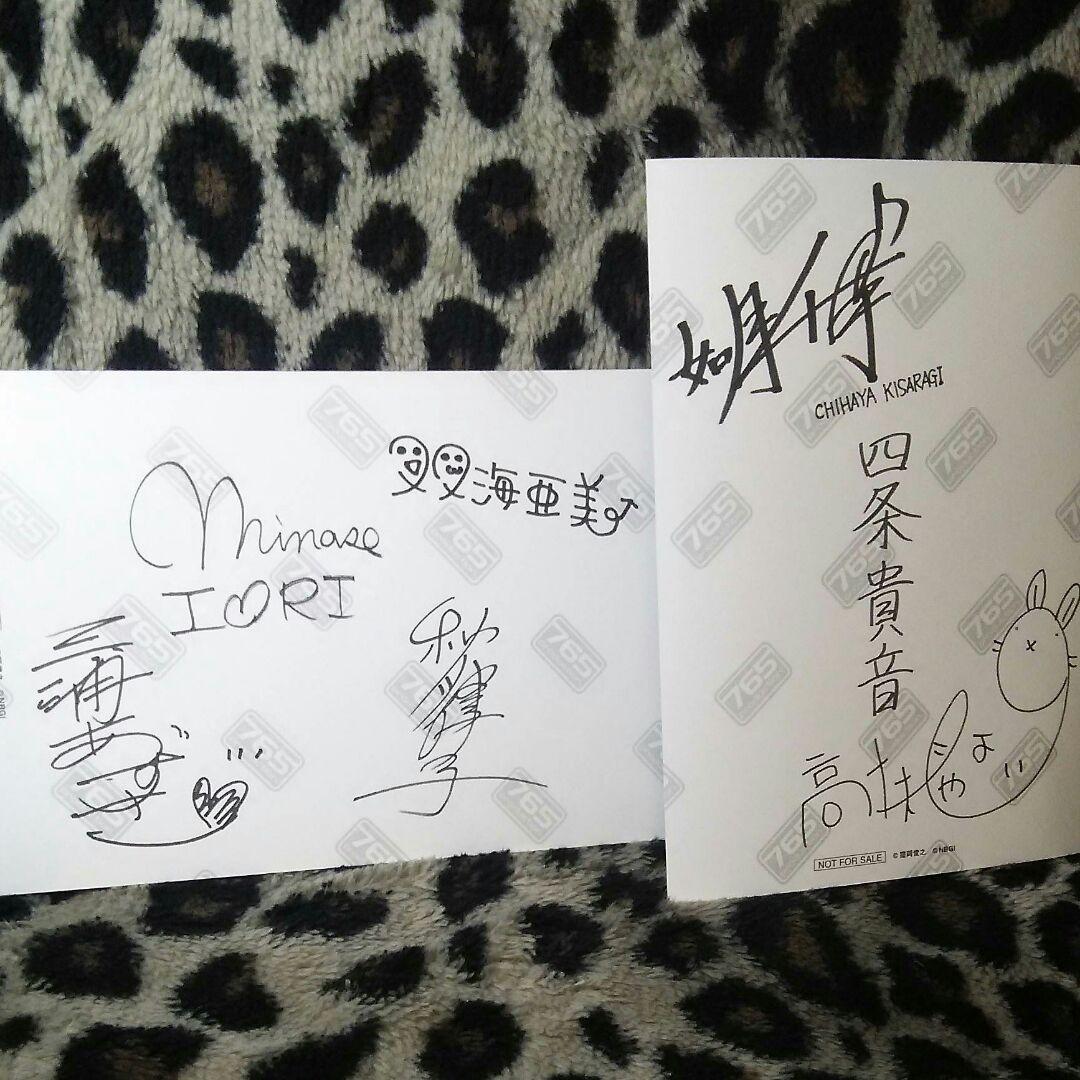 双海亜美
Minase
IORI
三浦あずさ
秋月律子
如月千早
CHIHAYA KISARAGI
四条貴音
高槻やよい
NOT FOR SALE
©NBGI
765